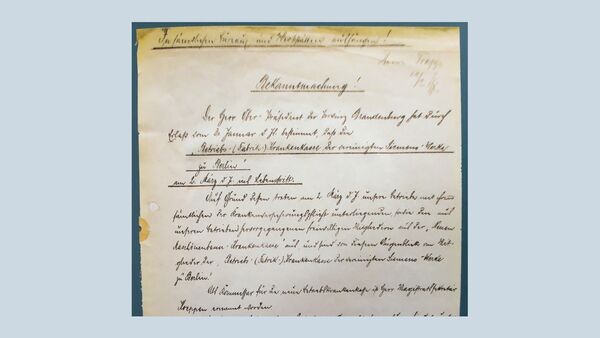 In sämtlichen Büreaus und Werkstätten aufhängen!
Bekanntmachung!
Der Herr Ober-Präsident der Provinz Brandenburg hat durch
Erlaß vom 20. Januar d. J. bestimmt, daß die
„Betriebs-(Fabrik-)Krankenkasse der vereinigten Siemens-Werke
zu Berlin“
am 2. März d. J. ins Leben tritt.
Auf Grund dessen treten am 2. März d. J. unsere Betriebe mit
sämtlichen der Krankenversicherungspflicht unterliegenden sowie den aus
unseren Betrieben hervorgegangenen freiwilligen Mitgliedern aus der „Neuen
Maschinenbauer-Krankenkasse“ aus und sind von diesem Augenblick an Mit-
glieder der „Betriebs-(Fabrik-)Krankenkasse der vereinigten Siemens-Werke
zu Berlin“.
Als Kommissar für die neue Betriebskrankenkasse ist Herr Magistratssekretär
Hoeppen ernannt worden.